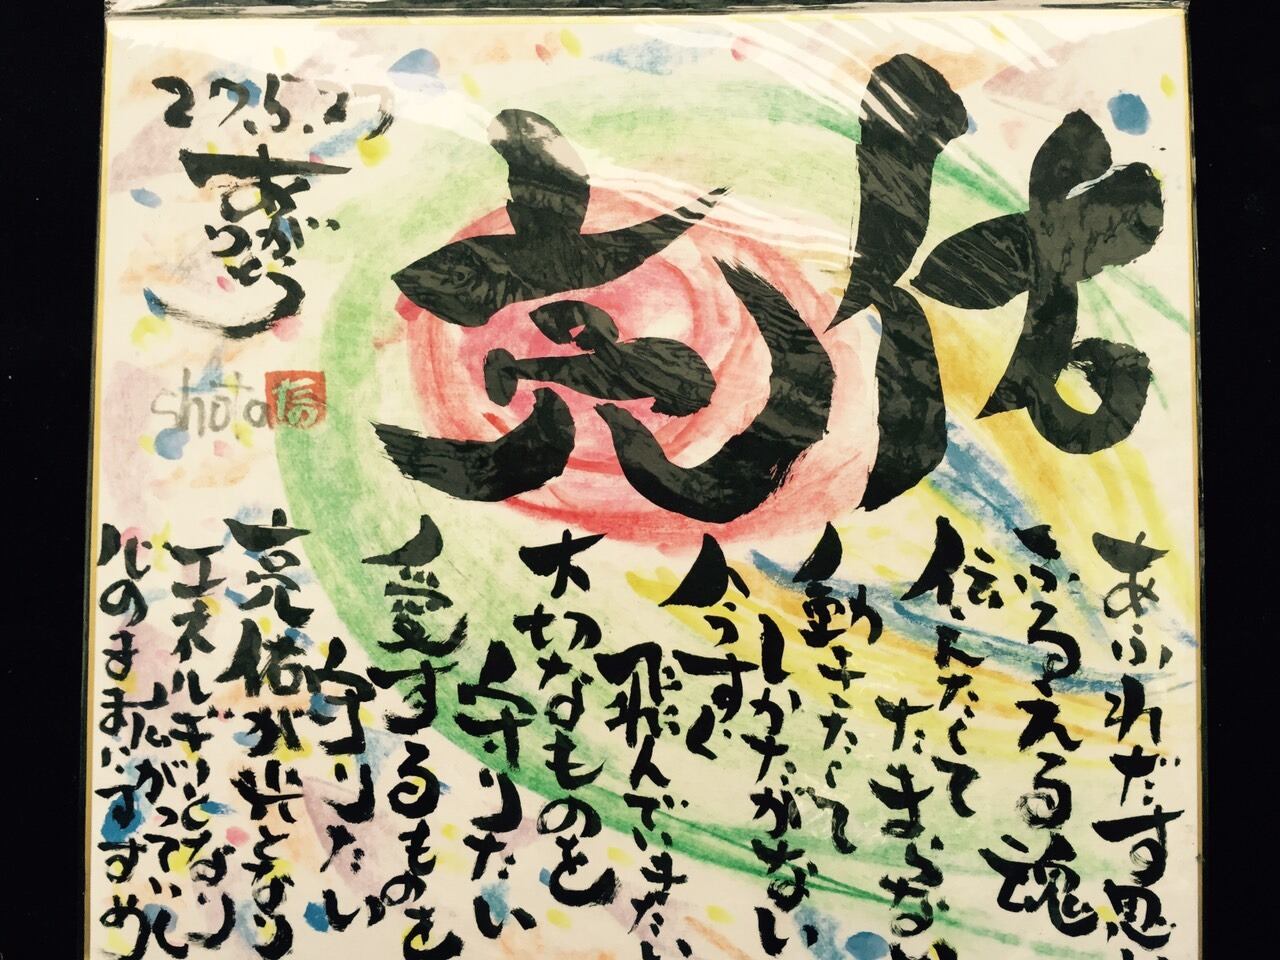 亮佑
あふれだす思い
ふるえる魂
伝えたくて
たまらない
動きたくて
しかたがない
今すぐ
飛んでいきたい
大切なものを
守りたい
愛するものを
守りたい
亮佑が光となり
エネルギーとなり
広がっていく
心のままにすすめ
27.5.27
ありがとう
shota